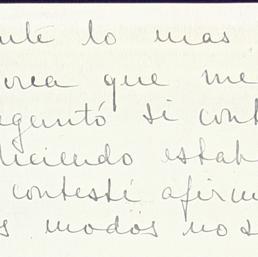 nte lo mas
orca que me
eguntó si cont
diciendo estab
contesté afirm
s modos nos